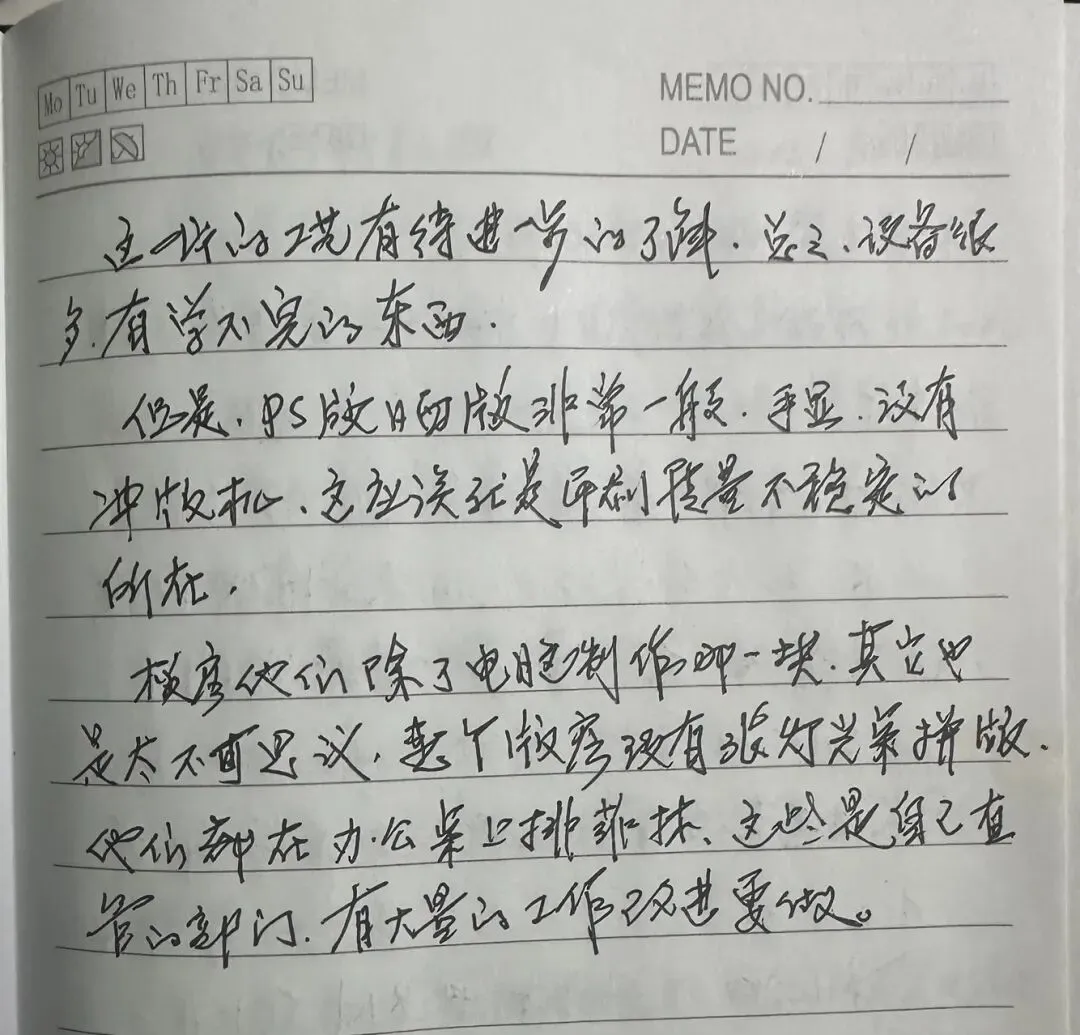 Mo Tu We Th Fr Sa Su
MEMO NO.
DATE / /
这一块的工艺有待进一步的了解.总之、设备很
多.有学不完的东西.
但是、PS版日晒版非常一般.手显.没有
冲版机、这应该就是印刷质量不稳定的
所在.
他们除了电脑制作那一块.其它也
是太不可思议.整个版房没有一张灯光桌拼版.
他们都在办公桌上排菲林、这些是自己直
管的部门.有大量的工作改进要做。